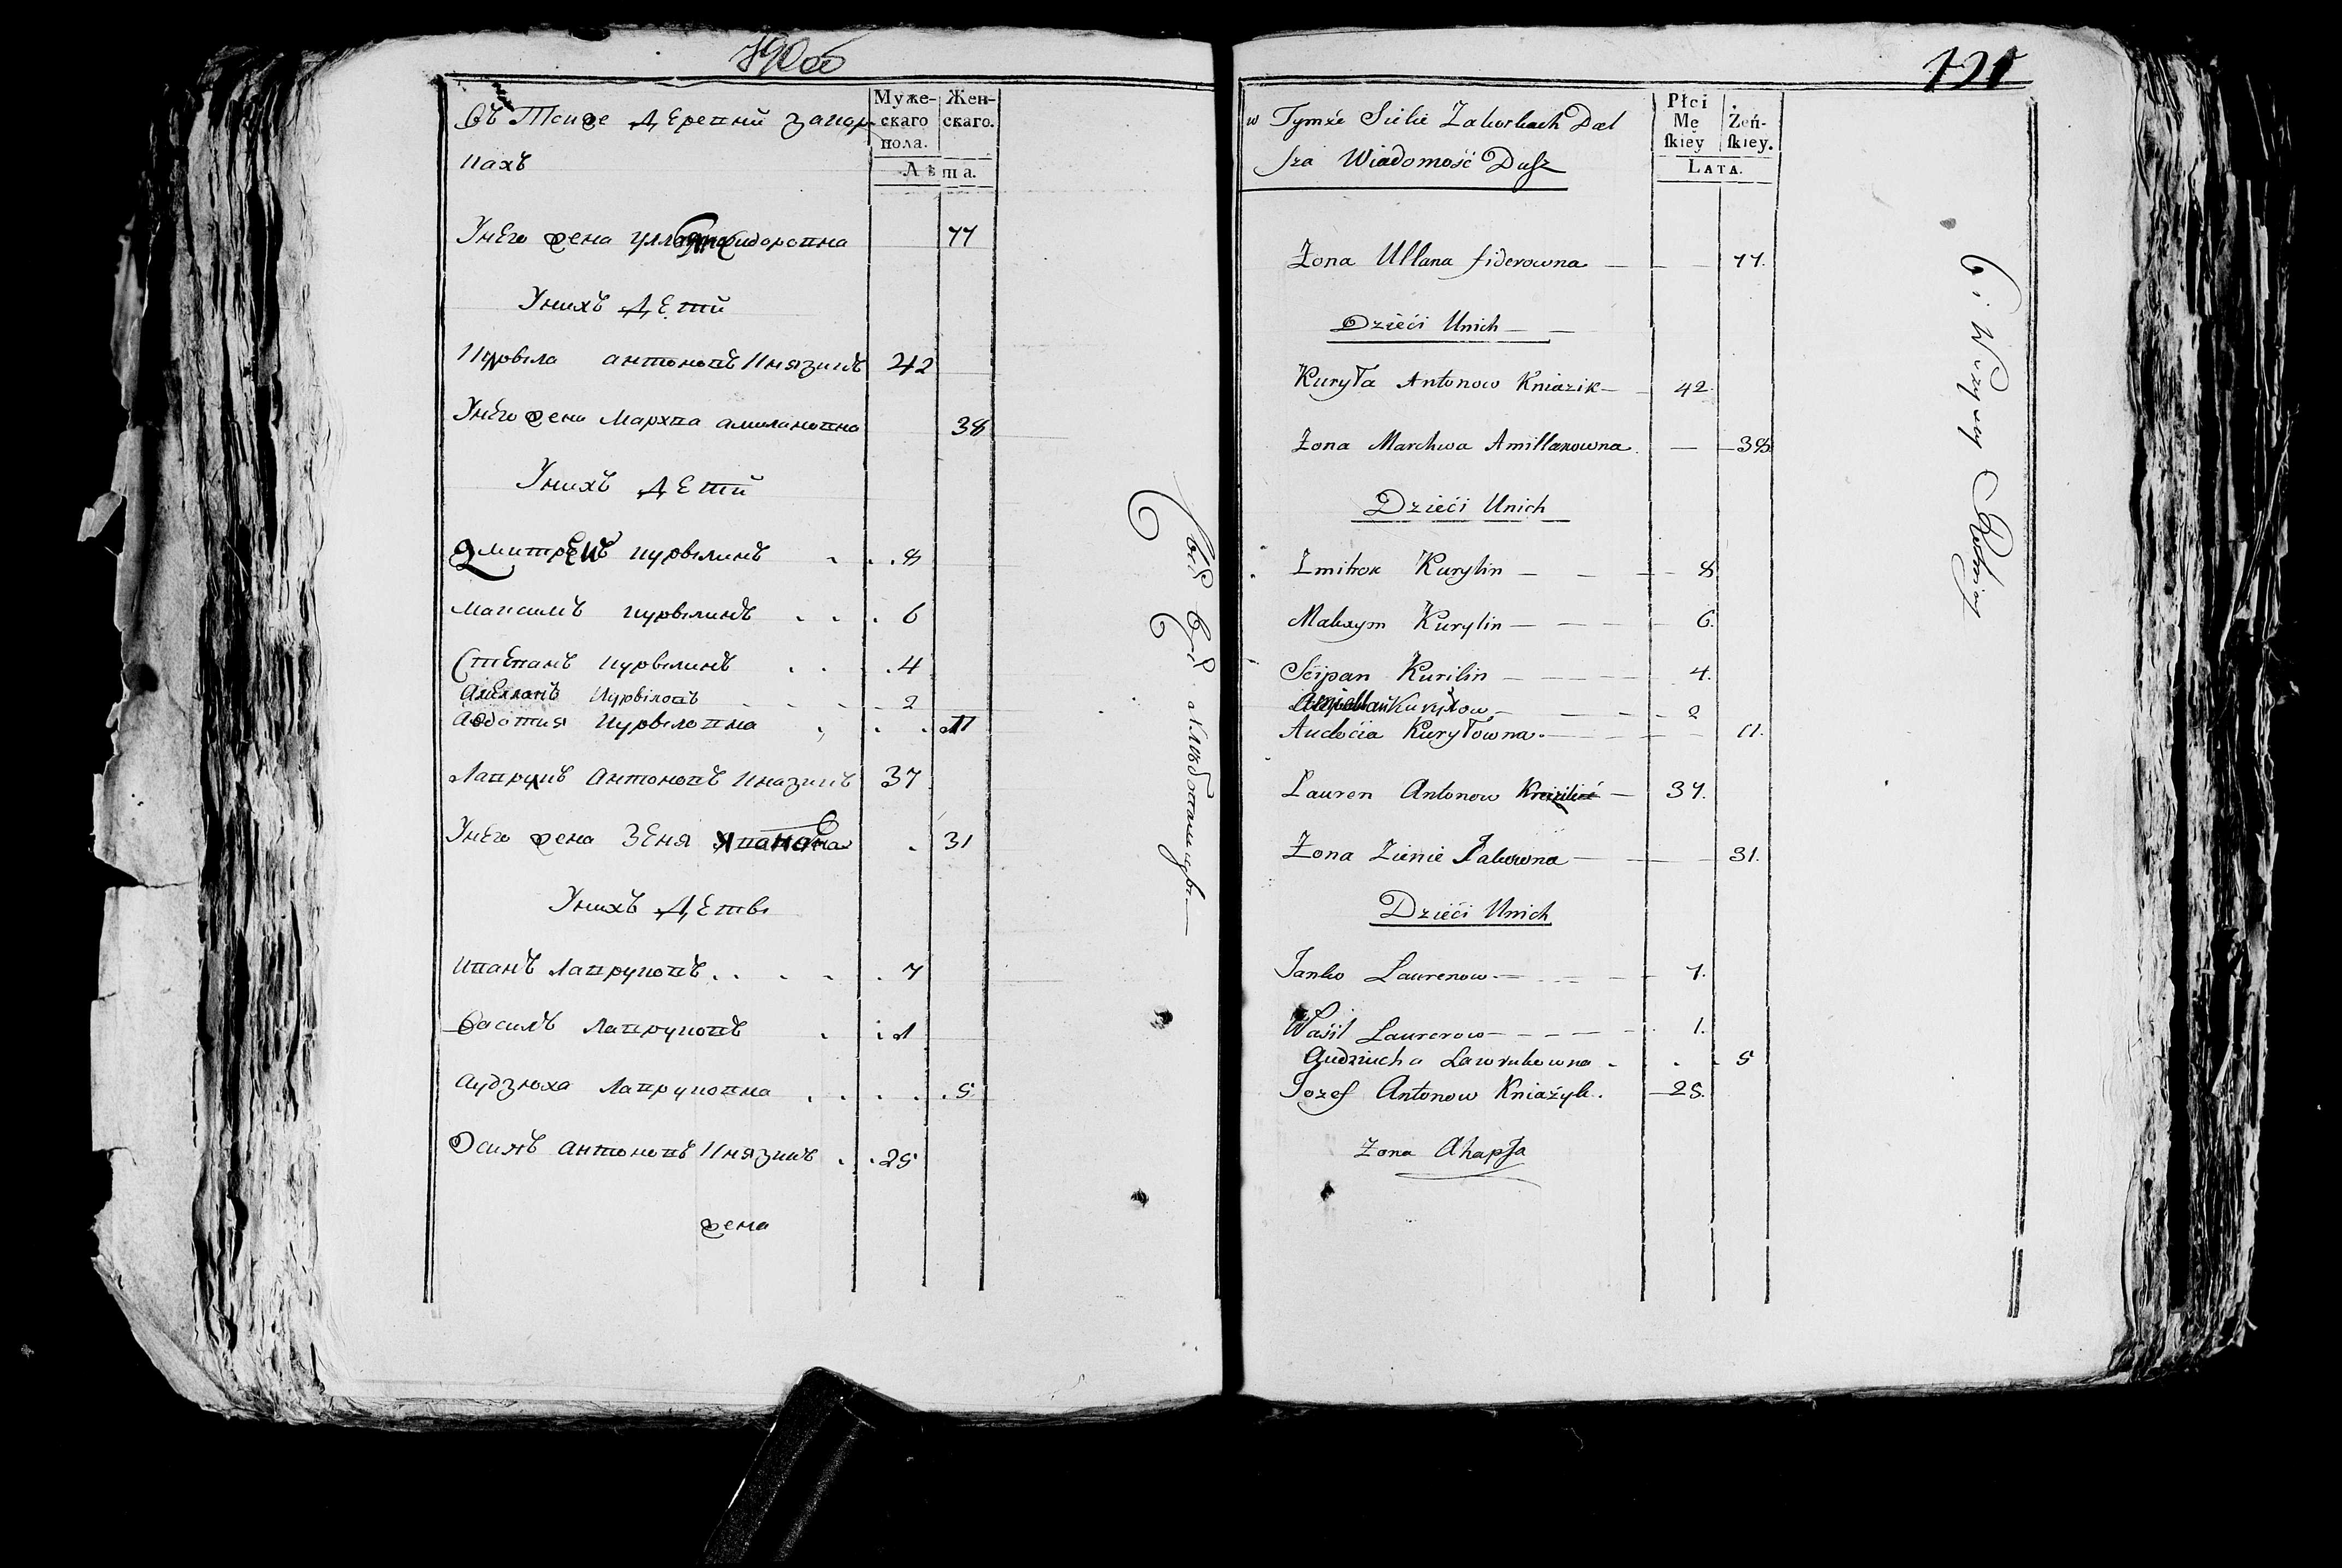 190об
въ Тойже Деревни Закор
кахъ
Муже-
скаго
пола.
Жен-
скаго.
Лѣта.
Унего жена Ульяна 77
Унихъ Дети
Курыла антоновъ Князикъ 42
Унего жена Мархва амиляновна 38
Унихъ Дети
Змитрокъ курылинъ 8
Максимъ курылинъ 6
Степанъ курылинъ 4
Курыловъ 2
Авдотия Курыловна 11
Лаврукъ Антоновъ Князикъ 37
Унего жена Зеня 31
Унихъ Деты
Иванъ Лавруковъ 7
Василь Лавруковъ 1
Аудзюха Лаврукова 5
Осипъ антоновъ Князикъ 25
жена
w Tymże Siele Zakorkach Dal
sza Wiadomość Dusz
Płci
Mę
skiey
Żeń-
skiey.
LATA.
Żona Ullana fiderowna 77.
Dzieci Unich
Kuryła Antonow Kniazik 42
Żona Marchwa Amillanowna 38
Dzieci Unich
Zmitrok Kurylin 8
Maksym Kurylin 6.
Scipan Kurilin 4.
Kuryłow 2
Audocia Kuryłowna 11.
Lauren Antonow 37.
Żona Zienie 31.
Dzieci Unich
Janko Laurenow 7.
Wasil Laurenow 1.
Audziucha Lawrukowna 5
Jozef Antonow Kniażyk. 25.
Żona Ahapsa